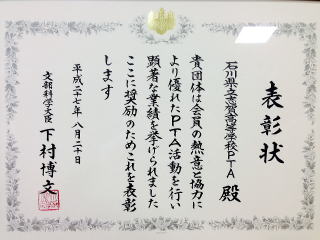 表彰状
石川県立志賀高等学校PTA 殿
貴団体は会員の熱意と協力に
より優れたPTA活動を行い
顕著な業績を挙げられました
ここに奨励のためこれを表彰
します
平成二十七年八月二十日
文部科学大臣 下村博文